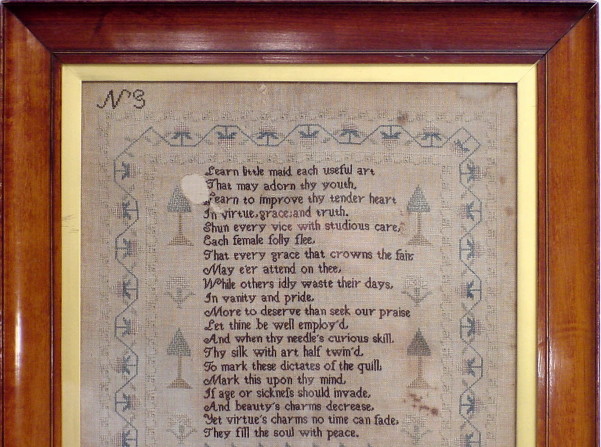 No 3
Learn little maid each useful art
That may adorn thy youth,
Learn to improve thy tender heart
In virtue, grace, and truth.
Shun every vice with studious care,
Each female folly flee,
That every grace that crowns the fair,
May e'er attend on thee,
While others idly waste their days,
In vanity and pride,
More to deserve than seek our praise
Let thine be well employ'd,
And when thy needle's curious skill.
Thy silk with art half twin'd,
To mark these dictates of the quill,
Mark this upon thy mind,
If age or sickneſs should invade,
And beauty's charms decrease,
Yet virtue's charms no time can fade,
They fill the soul with peace.